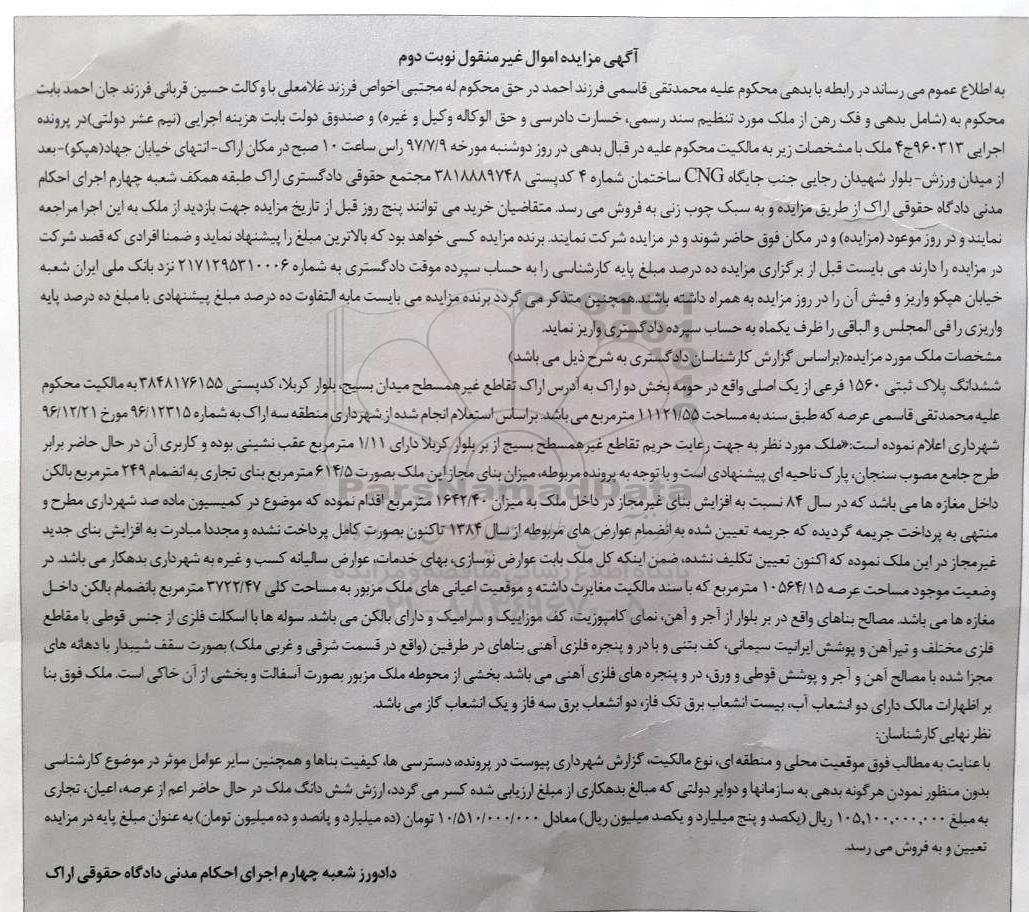 آگهی مزایده اموال غیر منقول نوبت دوم
به اطلاع عموم می رساند در رابطه با بدهی محکوم علیه محمدتقی قاسمی فرزند احمد در حق محکوم له مجتبی اخواص فرزند غلامعلی با وکالت حسین قربانی فرزند جان احمد بابت
محکوم به (شامل بدهی و فک رهن از ملک مورد تنظیم سند رسمی، خسارت دادرسی و حق الوکاله وکیل و غیره) و صندوق دولت بابت هزینه اجرایی (نیم عشر دولتی)در پرونده
اجرایی ۹۶۰۳۱۳ج۴ ملک با مشخصات زیر به مالکیت محکوم علیه در قبال بدهی در روز دوشنبه مورخه ۹۷/۷/۹ راس ساعت ۱۰ صبح در مکان اراک- انتهای خیابان جهاد(هپکو)-بعد
از میدان ورزش- بلوار شهیدان رجایی جنب جایگاه CNG ساختمان شماره ۴ کدپستی ۳۸۱۸۸۸۹۷۴۸ مجتمع حقوقی دادگستری اراک طبقه همکف شعبه چهارم اجرای احکام
مدنی دادگاه حقوقی اراک از طریق مزایده و به سبک چوب زنی به فروش می رسد. متقاضیان خرید می توانند پنج روز قبل از تاریخ مزایده جهت بازدید از ملک به این اجرا مراجعه
نمایند و در روز موعود (مزایده) و در مکان فوق حاضر شوند و در مزایده شرکت نمایند. برنده مزایده کسی خواهد بود که بالاترین مبلغ را پیشنهاد نماید و ضمنا افرادی که قصد شرکت
در مزایده را دارند می بایست قبل از برگزاری مزایده ده درصد مبلغ پایه کارشناسی را به حساب سپرده موقت دادگستری به شماره ۲۱۷۱۲۹۵۳۱۰۰۰۶ نزد بانک ملی ایران شعبه
خیابان هپکو واریز و فیش آن را در روز مزایده به همراه داشته باشند.همچنین متذکر می گردد برنده مزایده می بایست مابه التفاوت ده درصد مبلغ پیشنهادی با مبلغ ده درصد پایه
واریزی را فی المجلس و الباقی را ظرف یکماه به حساب سپرده دادگستری واریز نماید.
مشخصات ملک مورد مزایده:(براساس گزارش کارشناسان دادگستری به شرح ذیل می باشد)
ششدانگ پلاک ثبتی ۱۵۶۰ فرعی از یک اصلی واقع در حومه بخش دو اراک به آدرس اراک تقاطع غیر همسطح میدان بسیج، بلوار کربلا، کدپستی ۳۸۴۸۱۷۶۱۵۵ به مالکیت محکوم
علیه محمدتقی قاسمی عرصه که طبق سند به مساحت ۱۱۱۲۱/۵۵ مترمربع می باشد. براساس استعلام انجام شده از شهرداری منطقه سه اراک به شماره ۹۶/۱۲۳۱۵ مورخ ۹۶/۱۲/۲۱
شهرداری اعلام نموده است:«ملک مورد نظر به جهت رعایت حریم تقاطع غیر همسطح بسیج از بر بلوار کربلا دارای ۱/۱۱ مترمربع عقب نشینی بوده و کاربری آن در حال حاضر برابر
طرح جامع مصوب سنجان، پارک ناحیه ای پیشنهادی است و با توجه به پرونده مربوطه، میزان بنای مجاز این ملک بصورت ۶۱۴/۵ مترمربع بنای تجاری به انضمام ۲۴۹ مترمربع بالکن
داخل مغازه ها می باشد که در سال ۸۴ نسبت به افزایش بنای غیرمجاز در داخل ملک به میزان ۱۶۴۲/۴۰ مترمربع اقدام نموده که موضوع در کمیسیون ماده صد شهرداری مطرح و
منتهی به پرداخت جریمه گردیده که جریمه تعیین شده به انضمام عوارض های مربوطه از سال ۱۳۸۴ تاکنون بصورت کامل پرداخت نشده و مجددا مبادرت به افزایش بنای جدید
غیرمجاز در این ملک نموده که اکنون تعیین تکلیف نشده، ضمن اینکه کل ملک بابت عوارض نوسازی، بهای خدمات، عوارض سالیانه کسب و غیره به شهرداری بدهکار می باشد. در
وضعیت موجود مساحت عرصه ۱۰۵۶۴/۱۵ مترمربع که با سند مالکیت مغایرت داشته و موقعیت اعیانی های ملک مزبور به مساحت کلی ۳۷۲۲/۴۷ مترمربع بانضمام بالکن داخل
مغازه ها می باشد. مصالح بناهای واقع در بر بلوار از آجر و آهن، نمای کامپوزیت، کف موزاییک و سرامیک و دارای بالکن می باشد. سوله ها با اسکلت فلزی از جنس قوطی با مقاطع
فلزی مختلف و تیرآهن و پوشش ایرانیت سیمانی، کف بتنی و با در و پنجره فلزی آهنی بناهای در طرفین (واقع در قسمت شرقی و غربی ملک) بصورت سقف شیبدار با دهانه های
مجزا شده با مصالح آهن و آجر و پوشش قوطی و ورق، در و پنجره های فلزی آهنی می باشد. بخشی از محوطه ملک مزبور بصورت آسفالت و بخشی از آن خاکی است. ملک فوق بنا
بر اظهارات مالک دارای دو انشعاب آب، بیست انشعاب برق تک فاز، دو انشعاب برق سه فاز و یک انشعاب گاز می باشد.
نظر نهایی کارشناسان:
با عنایت به مطالب فوق موقعیت محلی و منطقه ای، نوع مالکیت، گزارش شهرداری پیوست در پرونده، دسترسی ها، کیفیت بناها و همچنین سایر عوامل موثر در موضوع کارشناسی
بدون منظور نمودن هرگونه بدهی به سازمانها و دوایر دولتی که مبالغ بدهکاری از مبلغ ارزیابی شده کسر می گردد، ارزش شش دانگ ملک در حال حاضر اعم از عرصه، اعیان، تجاری
به مبلغ ۱۰۵,۱۰۰,۰۰۰,۰۰۰ ریال (یکصد و پنج میلیارد و یکصد میلیون ریال) معادل ۱۰/۵۱۰/۰۰۰/۰۰۰ تومان (ده میلیارد و پانصد و ده میلیون تومان) به عنوان مبلغ پایه در مزایده
تعیین و به فروش می رسد.
دادورز شعبه چهارم اجرای احکام مدنی دادگاه حقوقی اراک
ParsNamadData